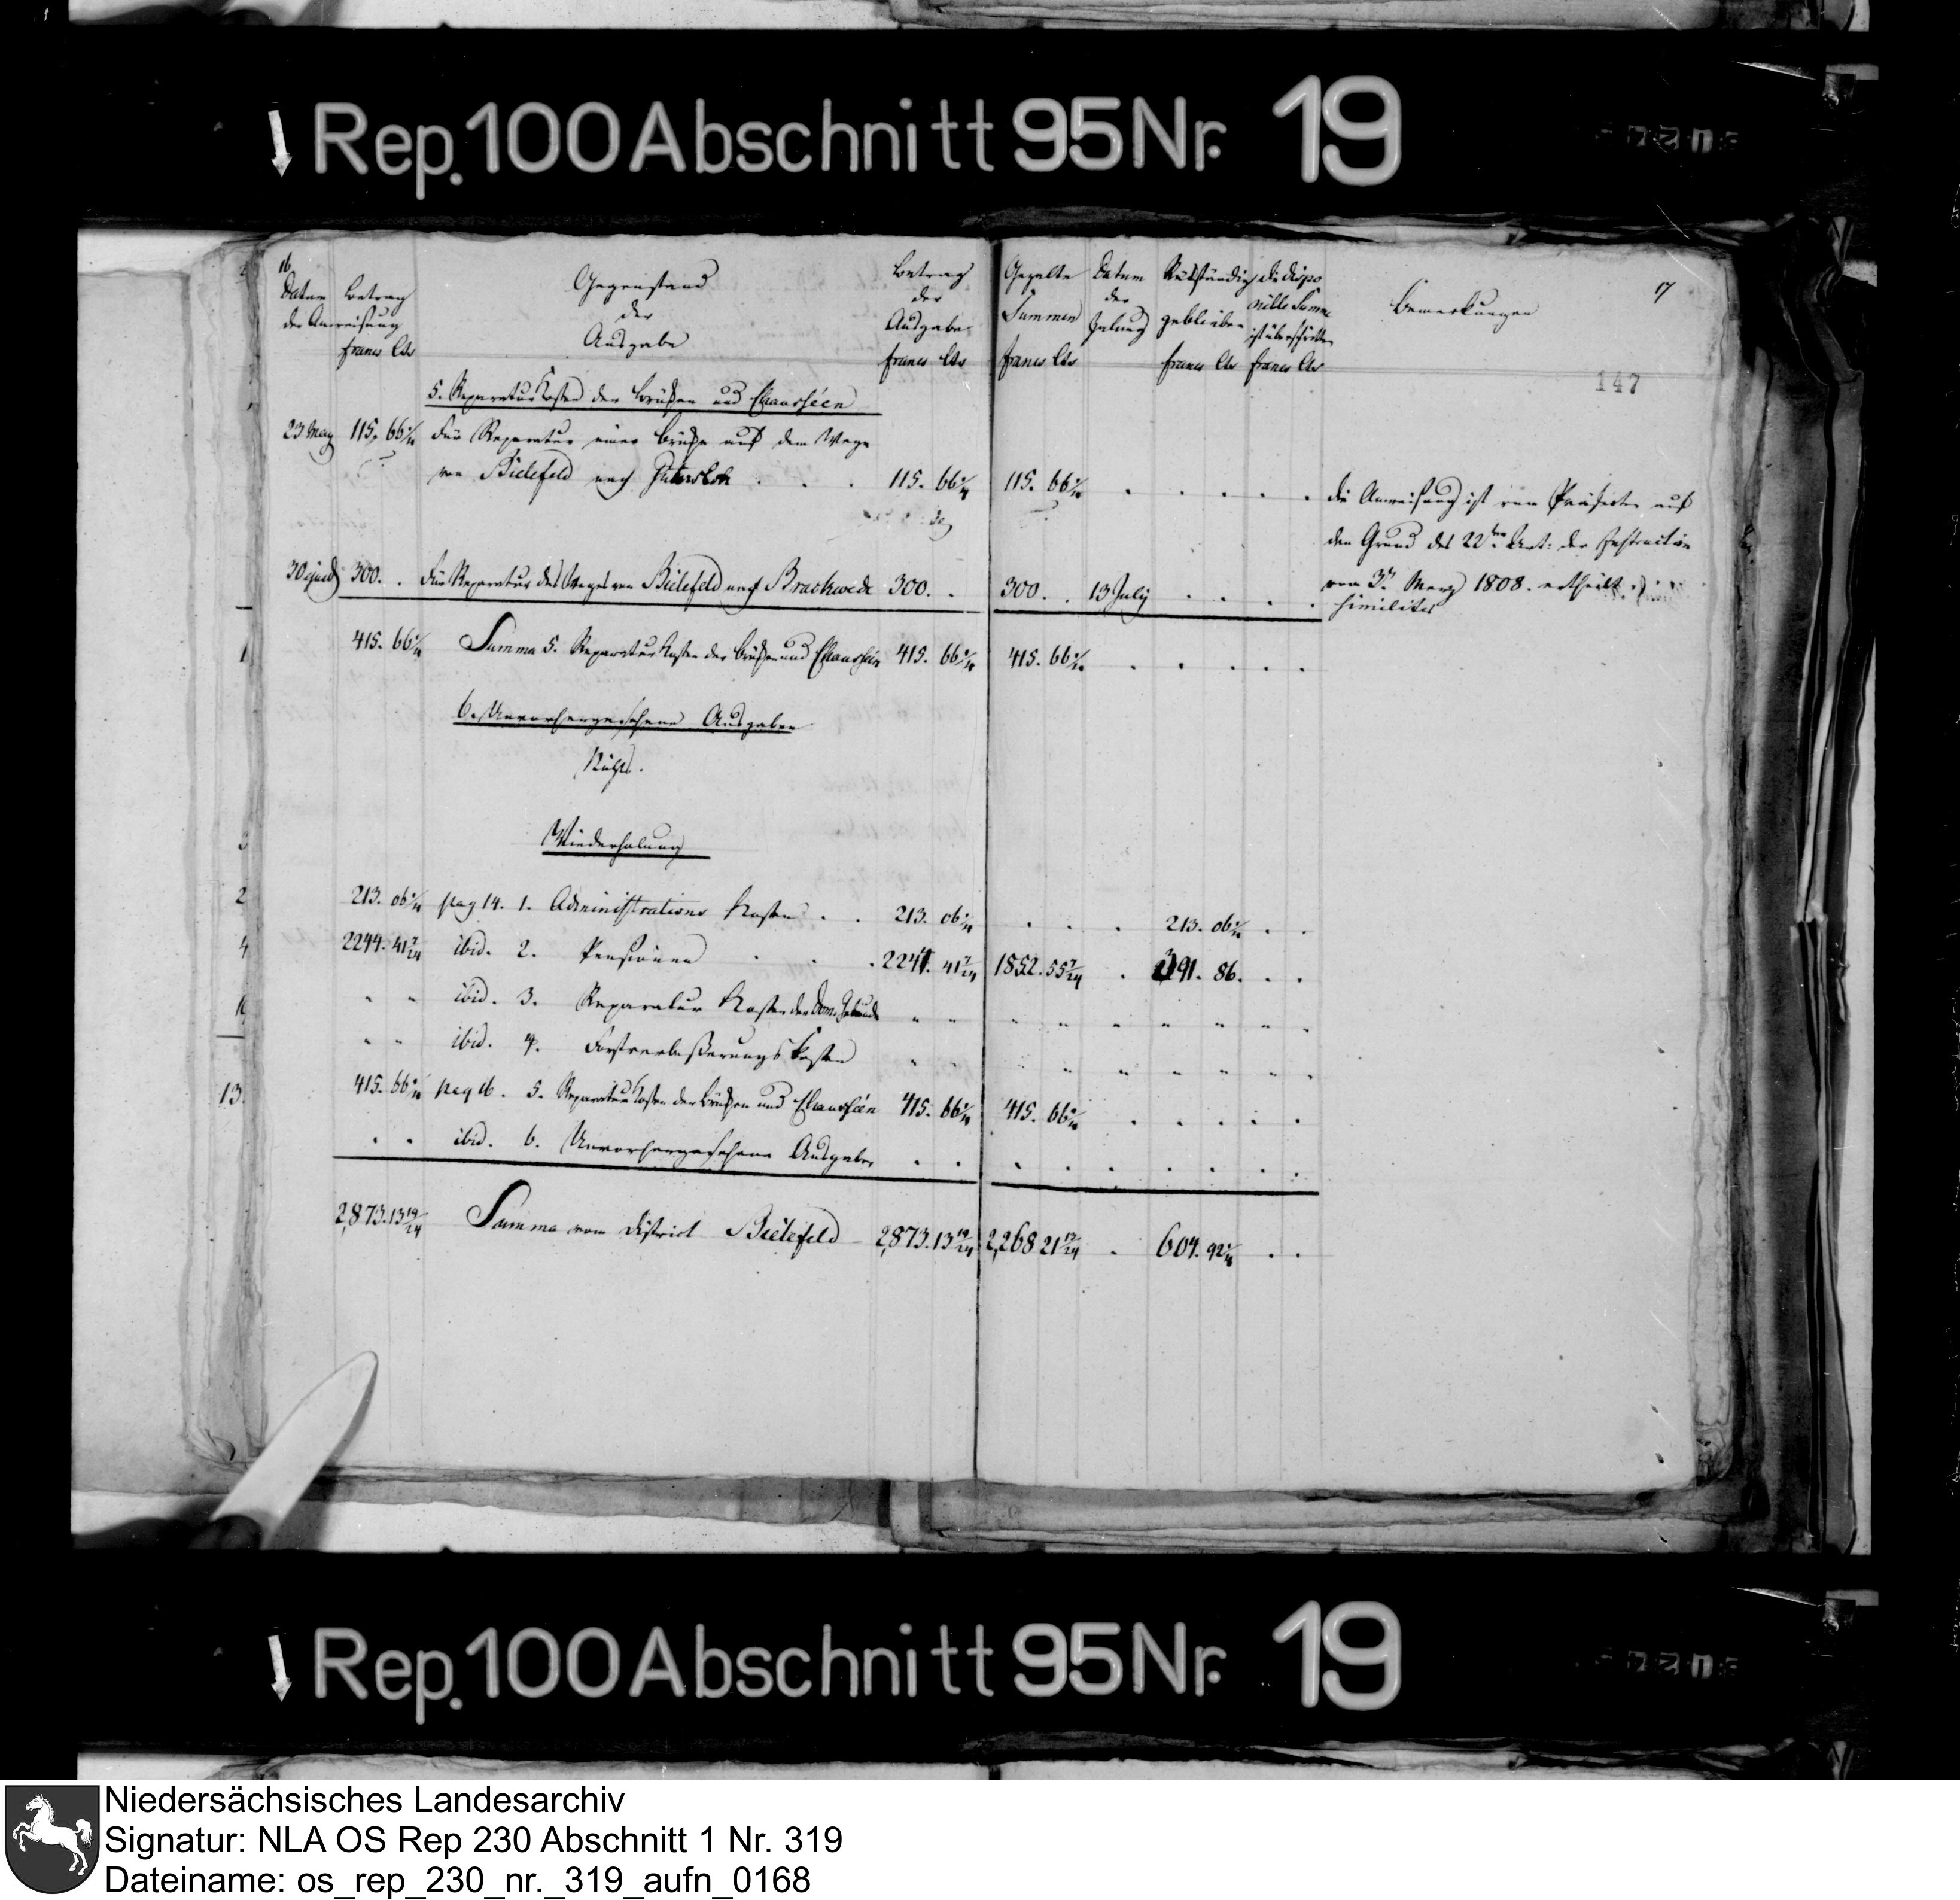 Rep. 100 Abschnitt 95 Nr. 19
16.
Datum Betrag
der Anweisung
francs Cts
Gegenstand
der
Ausgabe
Betrag
der
Ausgabe
francs Cts
Gezalte
Summen
francs Cts
Datum
der
Zalung
Rükständig
geblieben
francs Cts
die dispo
nible Summe
ist überschritten
francs Cts
Bemerkungen
17
147
5. Reparatur Kosten der Brükken und Chausséen
23 May 115. 66 Für Reparatur einer Brükke auf dem Wege
von Bielefeld nach Gütersloh . . . 115. 66 115. 66 . . . . .
die Anweisung ist vom Präfecten auf
den Grund des 22ten Art: der Instruction
vom 3n Merz 1808. ertheilt.
30 ejusd 300. . Für Reparatur des Weges von Bielefeld nach Brackwede 300. . 300. . 13 July . . . .
similiter
415. 66 Summa 5. Reparatur Kosten der Brükken und Chausséen 415. 66 415. 66 . . . . .
6. Unvorhergesehene Ausgaben
Nichts.
Wiederholung
213. 06 pag 14. 1. Administrations Kosten . . 213. 06 . . . 213. 06 . .
2244. 41 7/24 ibid. 2. Pensionen . . . 2244. 41 7/24 1852. 55 7/24 . 391. 86. . .
" " ibid. 3. Reparatur Kosten der Dom. Gebäude " " " " " " " " "
" " ibid. 4. Forstverbeßerungs Kosten " " " " " " " " "
415. 66 pag 16. 5. Reparatur Kosten der Brükken und Chausséen 415. 66 415. 66 . . . . .
. . ibid. 6. Unvorhergesehene Ausgaben . . . . . . . . .
2,873. 13 19/24 Summa vom District Bielefeld 2,873. 13 19/24 2,268 21 19/24 . 604. 92 . .
13.
Rep. 100 Abschnitt 95 Nr. 19
Niedersächsisches Landesarchiv
Signatur: NLA OS Rep 230 Abschnitt 1 Nr. 319
Dateiname: os_rep_230_nr._319_aufn_0168